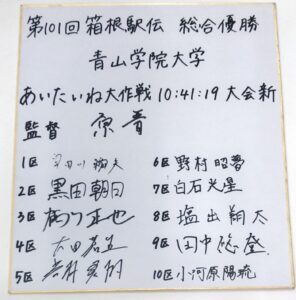 第101回箱根駅伝 総合優勝
青山学院大学
あいたいね大作戦 10:41:19 大会新
監督 原晋
1区
2区 黒田朝日
3区 鶴川正也
4区 太田蒼生
5区
6区 野村昭夢
7区 白石光星
8区 塩出翔太
9区 田中悠登
10区 小河原陽琉